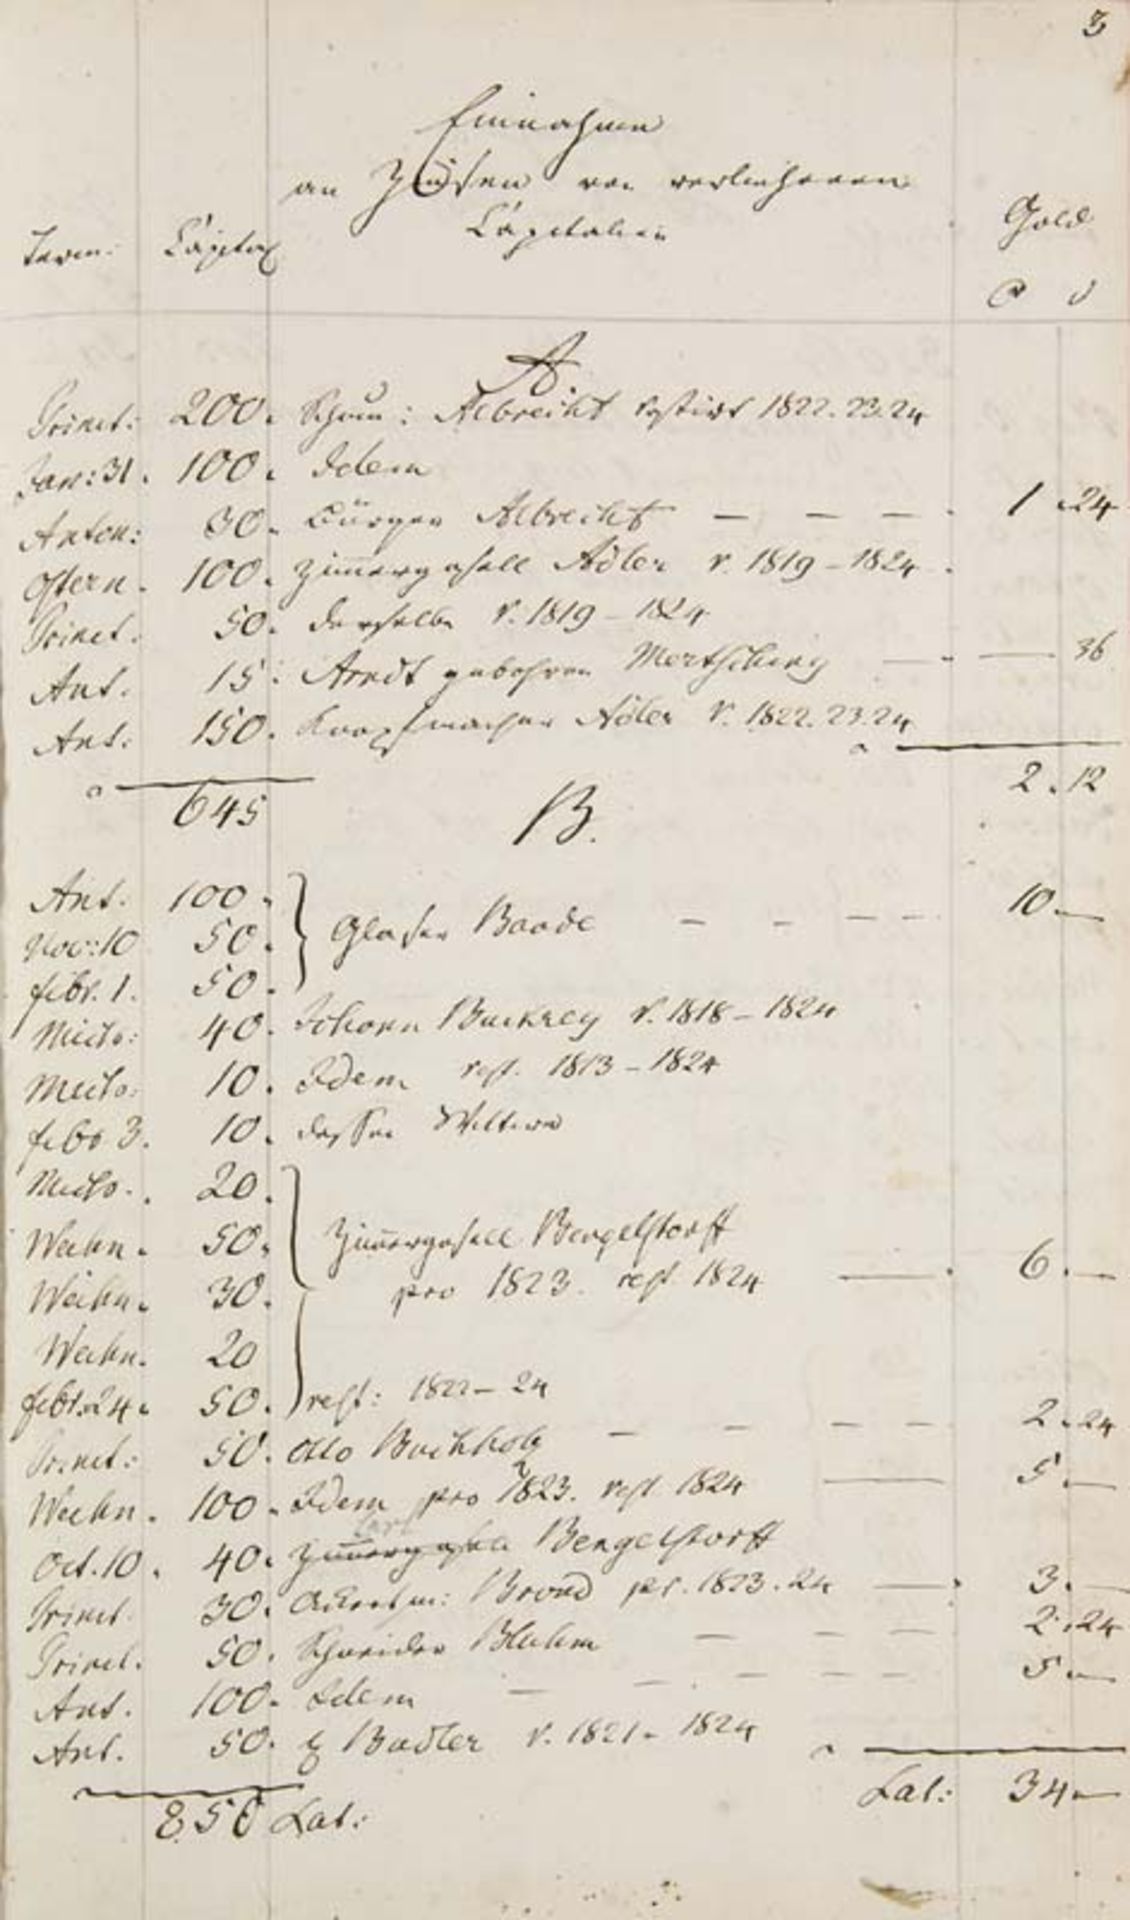 3
Einnahme
an Zinsen von verliehenen
Capitalien
Term: Capital Gold
A.
Trinit: 200. Schum: Albrecht restirt 1822. 23. 24
Jan: 31. 100. Idem
Anton: 30. Bürger Albrecht — — — — 1. 24
Ostern. 100. Zimmergesell Adler r. 1819 – 1824.
Trinit. 50. derselbe r. 1819 – 1824
Ant. 15. Arndt gebohrne — — 36
Ant: 150. Knopfmacher Adler r. 1822. 23. 24
645 2. 12
B.
Ant. 100.
Nov: 10 50. Glaser Baade — — — — 10 —
febr. 1. 50.
Mich: 40. Johann r. 1818 – 1824
Mich: 10. Idem rest. 1813 – 1824
febr 3. 10. dessen Wittwe
Mich. 20.
Weihn. 50. Zimmergesell Bengelstorff
Weihn. 30. pro 1823. rest 1824 — 6. —
Weihn. 20
febr. 24. 50. rest: 1822 – 24
Trinit: 50. Otto Buchholz — — — — 2. 24
Weihn. 100. Idem pro 1823. rest 1824 — 5. —
Oct. 10. 40. Zimmergesell Bengelstorff
Trinit. 30. Ackersm: Brand pr. 1823. 24 — 3. —
Trinit. 50. Schneider Bluhm — — — 2. 24
Ant. 100. Idem — — — — 5. —
Ant. 50. Badler r. 1821 – 1824
Lat: 34. —
850 Lat: